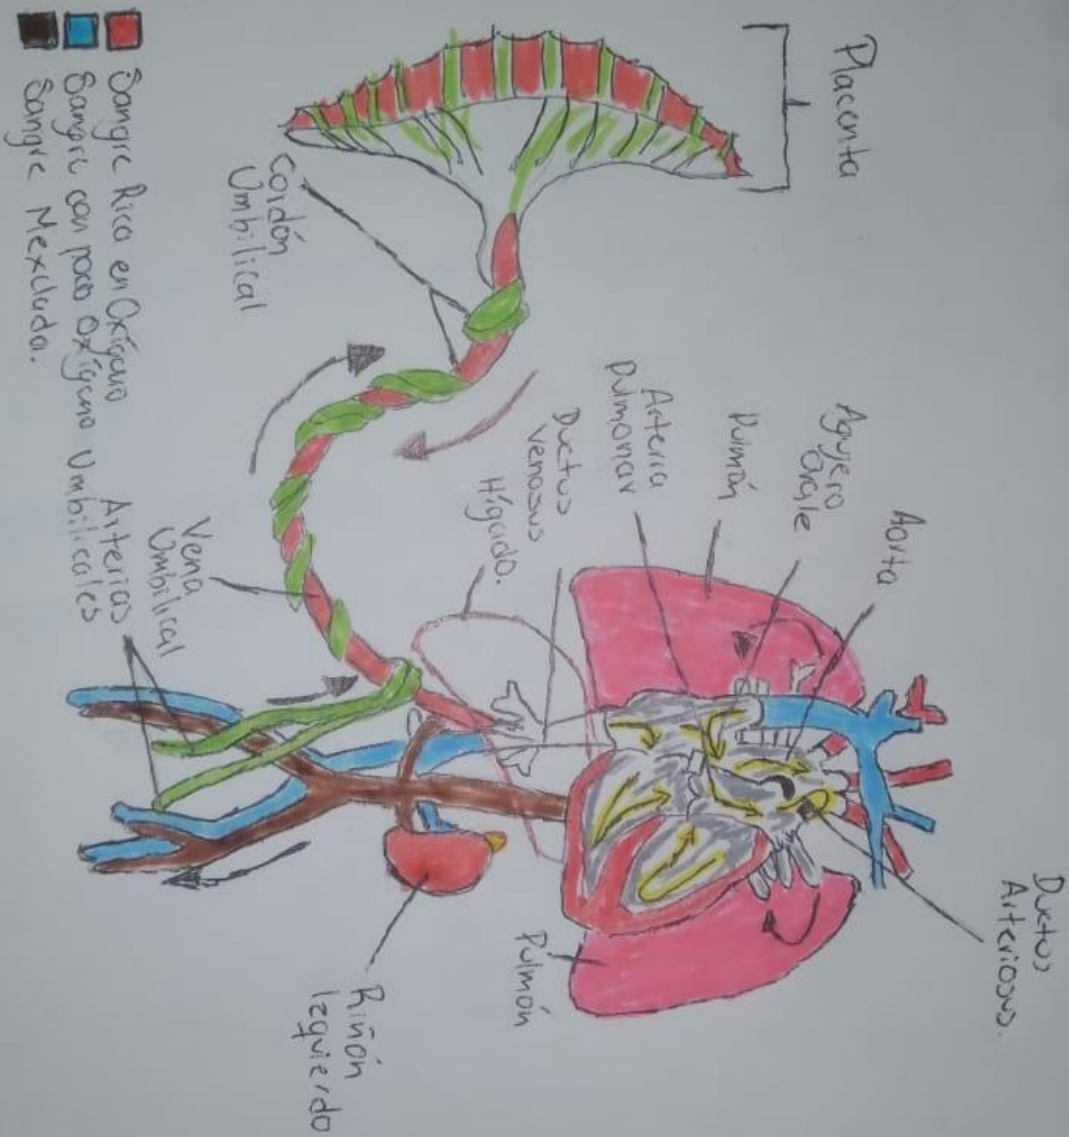 Placenta
Ductus
Arteriosus.
Aorta
Agujero
Ovale
Pulmón
Arteria
Pulmonar
Ductus
Venosus
Hígado.
Cordón
Umbilical
Vena
Umbilical
Arterias
Umbilicales
Pulmón
Riñón
Izquierdo
Sangre Rica en Oxígeno
Sangre con poco Oxígeno
Sangre Mexclada.